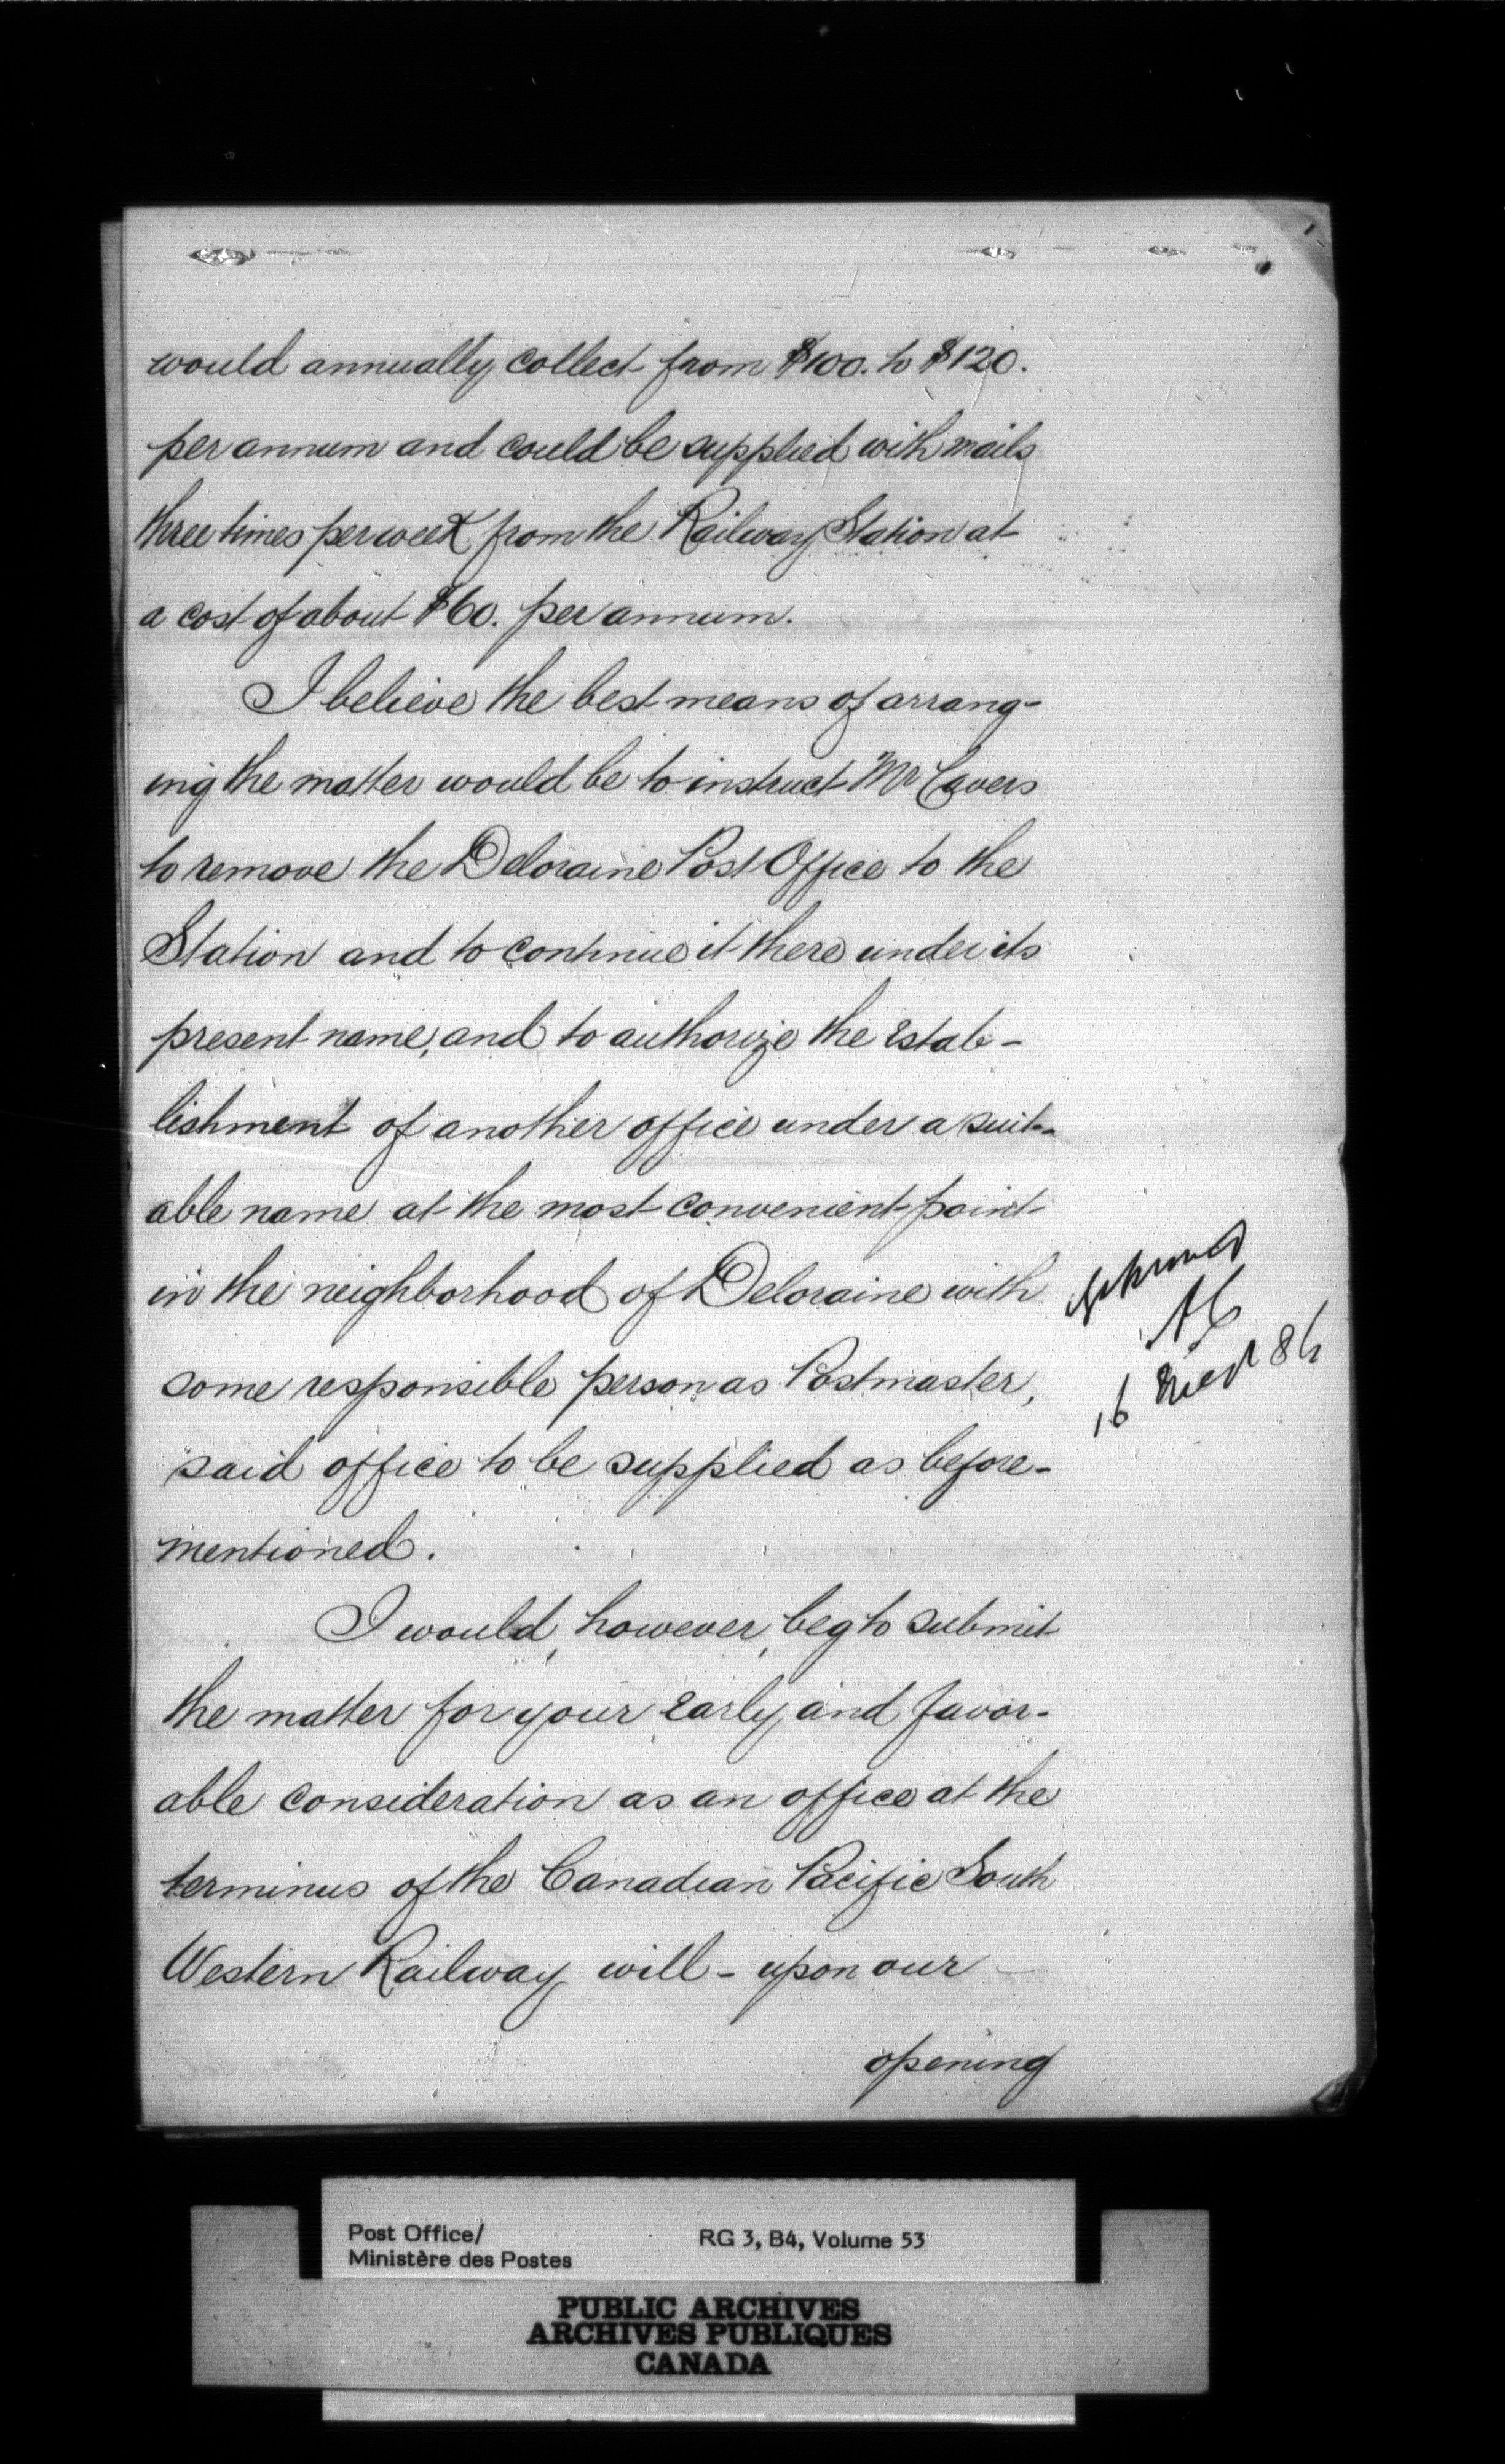 would annually collect from $100. to $120.
per annum and could be supplied with mails
three times per week from the Railway Station at
a cost of about $60. per annum.
I believe the best means of arrang-
ing the matter would be to instruct Mr Cavers
to remove the Deloraine Post Office to the
Station and to continue it there under its
present name, and to authorize the estab-
lishment of another office under a suit-
able name at the most convenient point
in the neighborhood of Deloraine with
some responsible person as Postmaster,
said office to be supplied as before-
mentioned.
I would, however, beg to submit
the matter for your early and favor-
able consideration as an office at the
terminus of the Canadian Pacific South
Western Railway will - upon our
opening
16
Post Office/
Ministère des Postes
RG 3, B4, Volume 53
PUBLIC ARCHIVES
ARCHIVES PUBLIQUES
CANADA